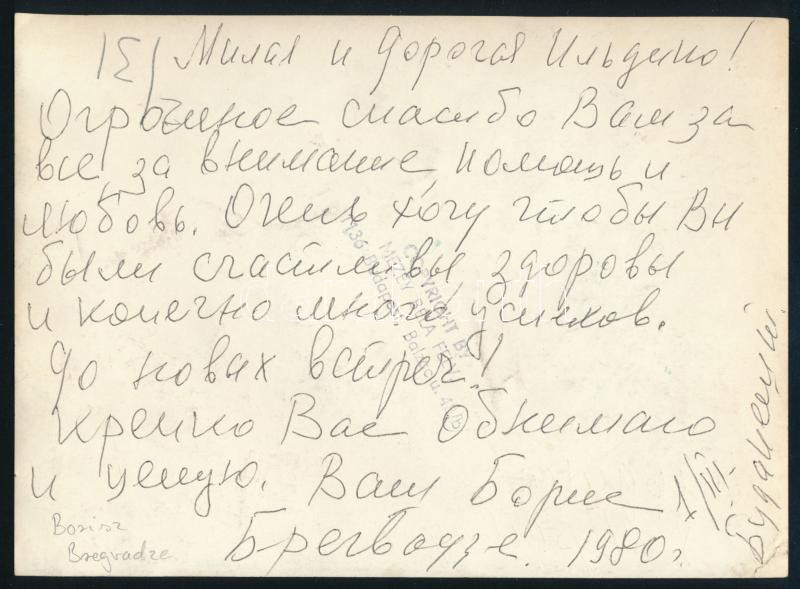 131 Милая и дорогая Ильдико!
Огромное спасибо Вам за
все, за внимание, помощь и
любовь. Очень хочу чтобы Вы
были счастливы, здоровы
и конечно много успехов.
До новых встреч!!
Крепко Вас обнимаю
и целую. Ваш Борис
Брегвадзе. 1980 г.
1/III.
Будапешт.
Borisz
Bregvadze
COPYRIGHT BY
MEZEY BÉLA
1136 Budapest, Balzac u.